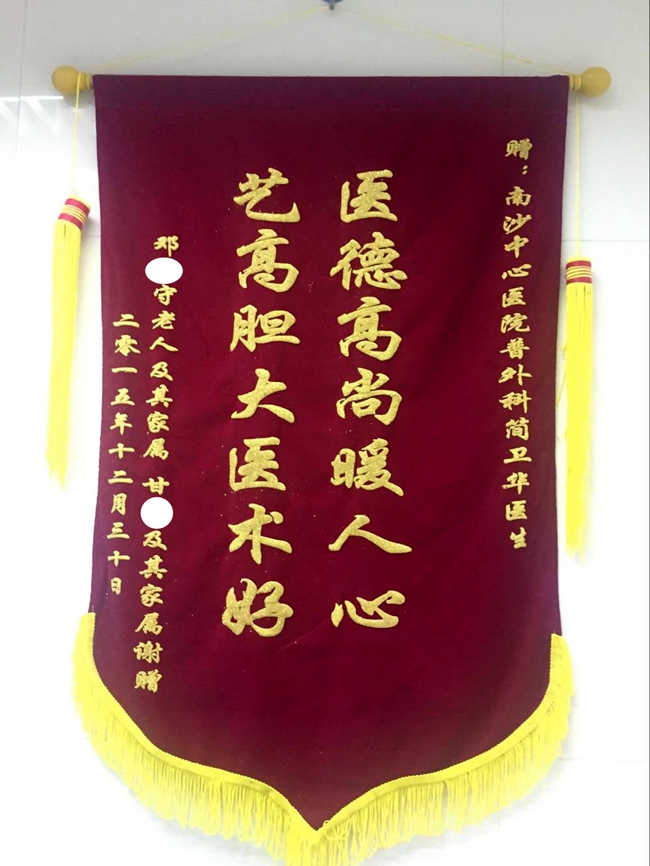 赠：南沙中心医院普外科简卫华医生
医德高尚暖人心
艺高胆大医术好
邓 守老人及其家属 甘 及其家属谢赠
二零一五年十二月三十日